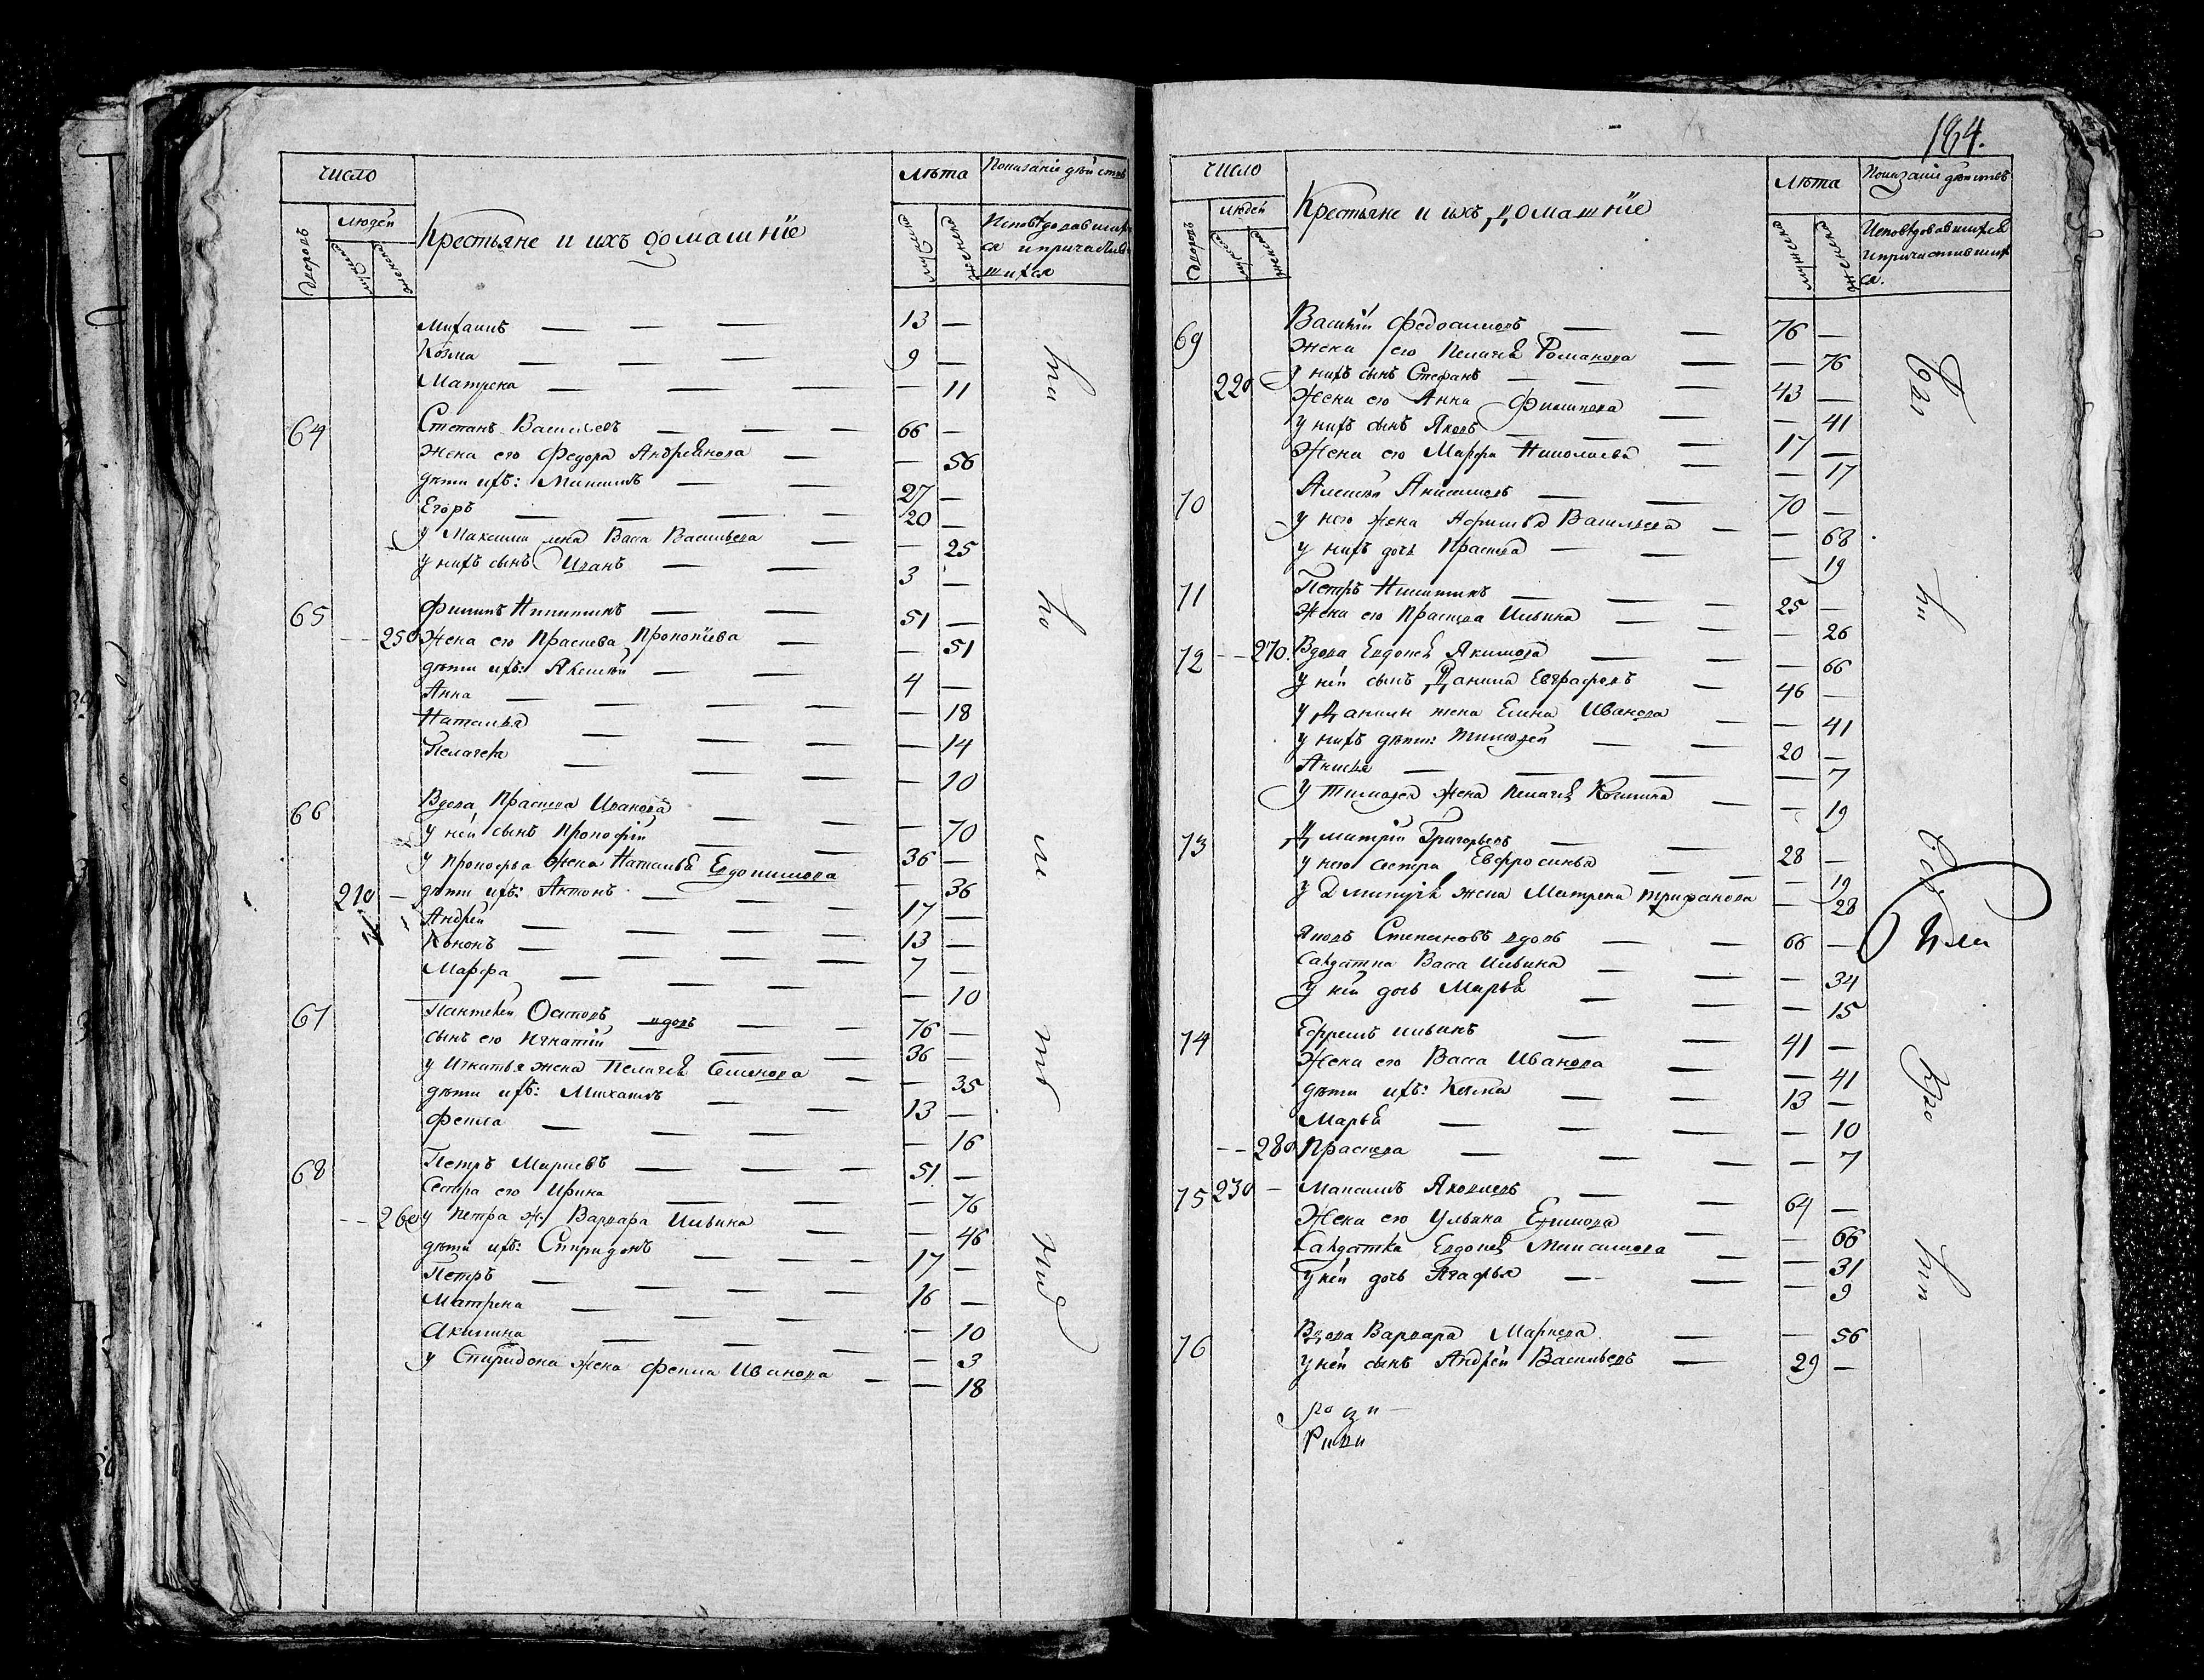 число
людей
дворовъ
мужска
женска
Крестьяне и ихъ домашніе
лѣта
мужска
женска
Показаніи дѣйствъ
Исповѣдовавших
ся и причастив
шихся
Михаилъ — — — 13 —
Козма — — — 9 —
Матрена — — — — 11
64 Степанъ Васильевъ — — — 66 —
Жена его Федора Андреянова — — 56
дѣти ихъ: Максимъ — — 27 —
Егоръ — — — — 20 —
у Максима жена Васа Васильева — — 25
у нихъ сынъ Иванъ — — 3 —
65 Филипъ Никитинъ — — 51 —
250 Жена его Прасковa Прокопіева — — 51
дѣти ихъ: Алексѣй — — 4 —
Анна — — — — — 18
Наталья — — — — 14
Пелагея — — — — 10
66 Вдова Прасковa Иванова — — — 70
у ней сынъ Прокофій — — 36 —
у Прокофья жена Наталья Евдокимова — 36
210 — дѣти ихъ: Антонъ — — — 17 —
Андрей — — — — 13 —
Кононъ — — — — 7 —
Марфа — — — — 10
67 Пантелей Осиповъ вдовъ — — 76 —
сынъ его Игнатій — — — 36 —
у Игнатья жена Пелагея Семенова — — 35
дѣти ихъ: Михаилъ — — 13 —
Фекла — — — — — 16
68 Петръ Марковъ — — — 51 —
Сестра его Ирина — — — — 76
260 у Петра ж. Варвара Ильина — — 46
дѣти ихъ: Спиридонъ — — — 17 —
Петръ — — — — 16 —
Матрена — — — — — 10
Акилина — — — — 3
у Спиридона жена Фекла Иванова — — 18
184.
число
людей
дворовъ
мужска
женска
Крестьяне и ихъ домашніе
Лѣта
мужска
женска
Показаніи дѣйствъ
Исповѣдовавшихся
и причастивших
ся.
69 Василій Федосимовъ — — 76 —
Жена его Пелагея Романова — — 76
220 у нихъ сынъ Стефанъ — — — 43 —
Жена его Анна Филипова — — 41
у нихъ сынъ Яковъ — — — 17 —
Жена его Марфа Николаева — — 17
70 Алексѣй Анисимовъ — — 70 —
у него жена Афимья Васильева — — 68
у нихъ дочь Прасковa — — — 19
71 Петръ Никитинъ — — — 25 —
Жена его Прасковa Ильина — — — 26
72 — — 270. Вдова Евдокея Якимова — — — 66
у ней сынъ Данила Евграфовъ — 46 —
у Данилы жена Елена Иванова — — 41
у нихъ дѣти: Тимофей — — 20 —
Анисья — — — — 7
у Тимофея жена Пелагея Козмина — — 19
73 Дмитрій Григорьевъ — — 28 —
у него сестра Евфросинья — — — 19
у Дмитрія жена Матрена Трифанова — 28
Яковъ Степановъ вдовъ — — 66 —
Салдатка Васса Ильина — — — 34
у ней дочь Марья — — — 15
74 Ефремъ Ильинъ — — 41 —
Жена его Васса Иванова — — — 41
дѣти ихъ: Козма — — 13 —
Марья — — — — 10
— — 280 Прасковa — — — — 7
75 230 — Максимъ Яковлевъ — — 64 —
Жена его Ульяна Ефимова — — 66
Салдатка Евдокея Максимова — — 31
у ней дочь Агафья — — — 9
76 Вдова Варвара Маркова — — 56
у ней сынъ Андрей Васильевъ — 29 —